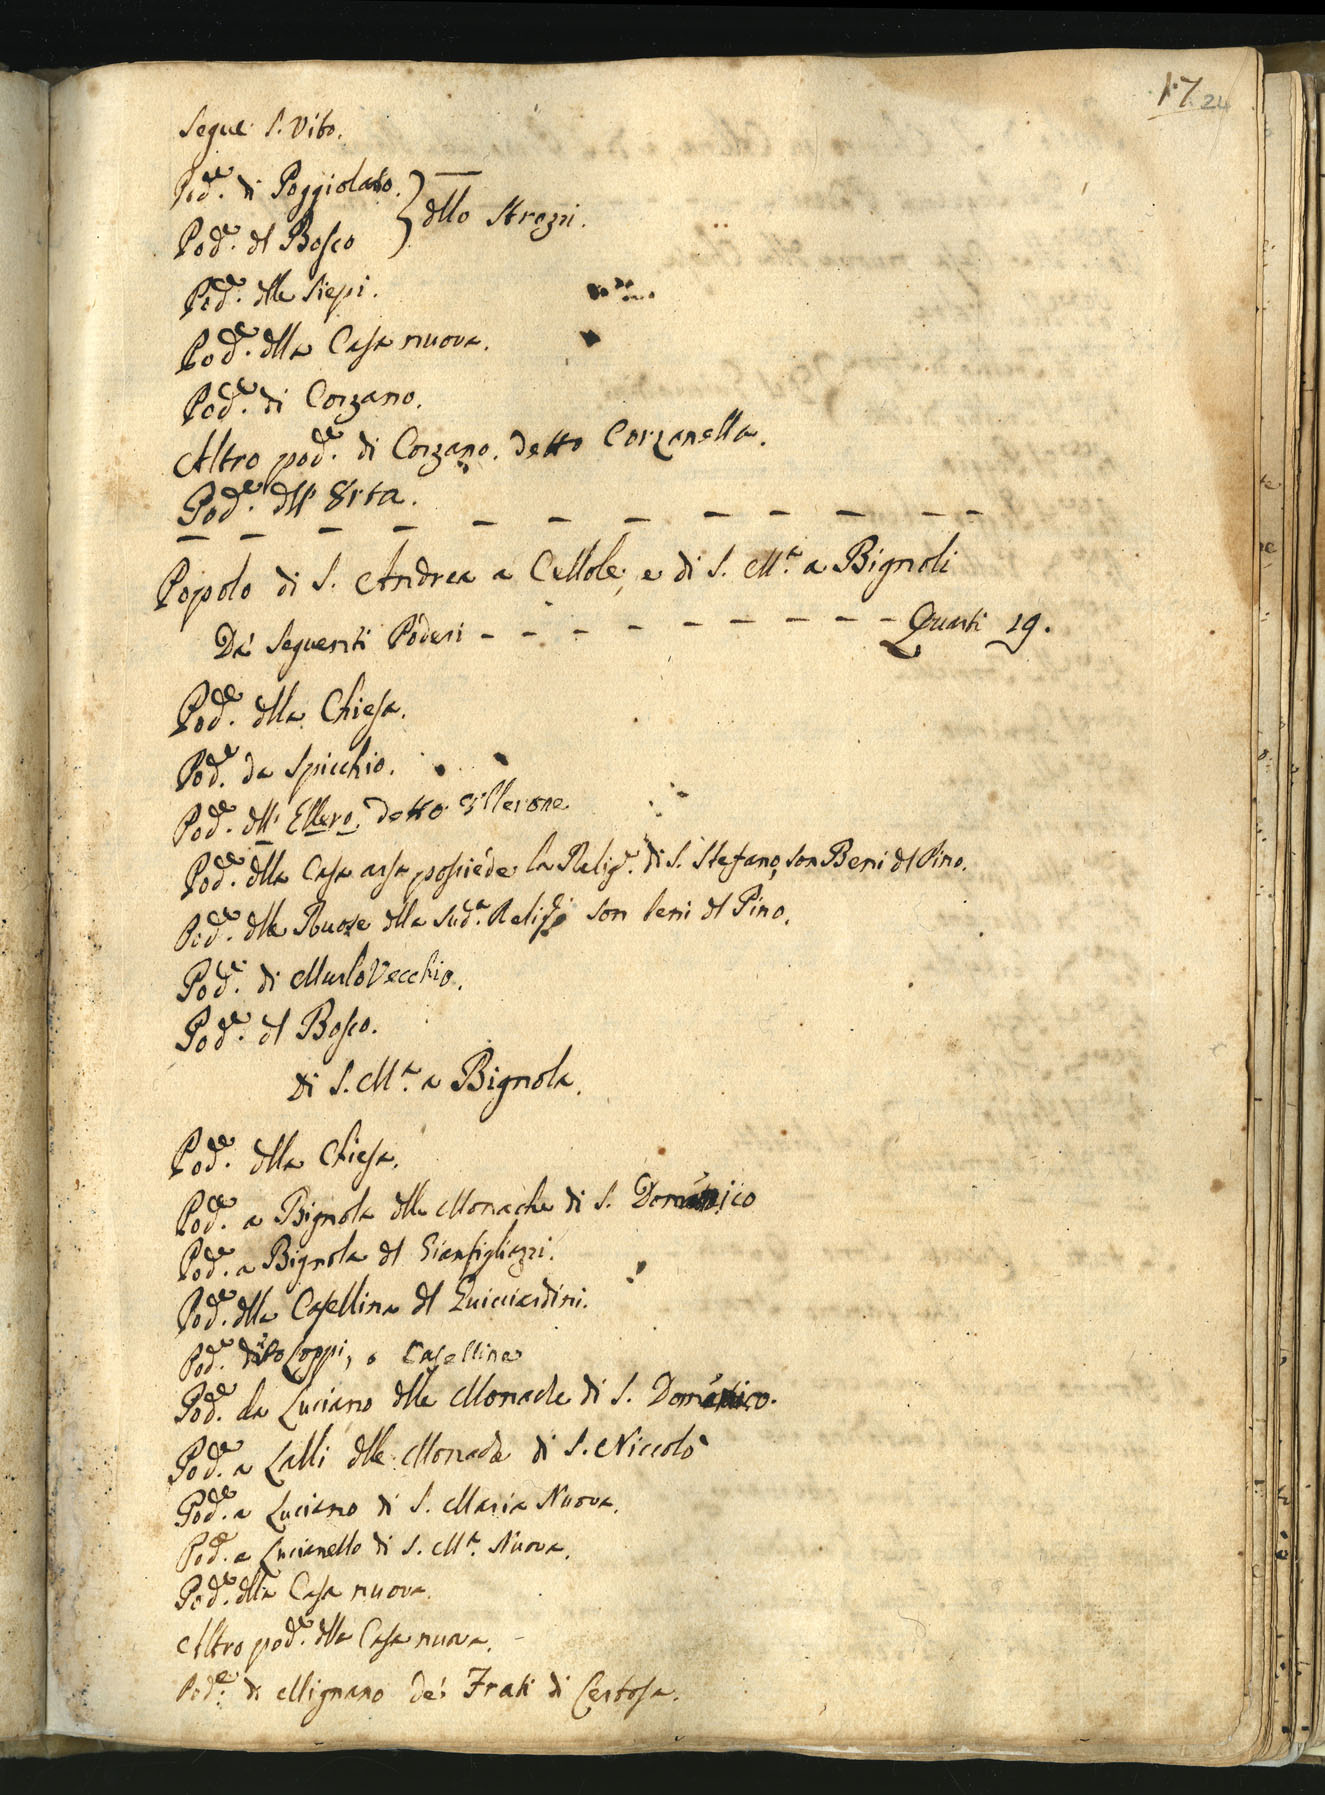 17 24
Segue S. Vito.
Pod.e di Poggiolato.
Pod.e dl Bosco } dllo Strozzi.
Pod.e dlle Siepi.
Pod.e dlla Casa nuova.
Pod.e di Corzano.
Altro pod.e di Corzano. detto Corzanella.
Pod.e dll' Erta.
Popolo di S. Andrea a Cellole, e di S. M.a a Bignoli
Da' seguenti Poderi - - - - - - - - - Quarti 19.
Pod.e dlla Chiesa.
Pod.e da Spicchio.
Pod.e dll' Ellero detto Ellerone
Pod.e dlla Casa arsa possiede la Relig.e di S. Stefano, son Beni dl Pino.
Pod.e dlle Ruose dlla Sud.a Relig.e son beni dl Pino.
Pod.e di MurloVecchio.
Pod.e dl Bosco.
Di S. M.a a Bignola.
Pod.e dlla Chiesa.
Pod.e a Bignola dlle Monache di S. Domenico
Pod.e a Bignola dl Gianfigliazzi.
Pod.e dlla Casellina dl Guicciardini.
Pod.e Loppi, o Casellina
Pod.e da Luciano dlle Monache di S. Domenico.
Pod.e a Lalli dlle Monache di S. Niccolò
Pod.e a Luciano di S. Maria Nuova.
Pod.e a Lucianello di S. M.a Nuova.
Pod.e dlla Casa nuova.
Altro pod.e dlla Casa nuova.
Pod.e di Mignano de' Frati di Certosa.